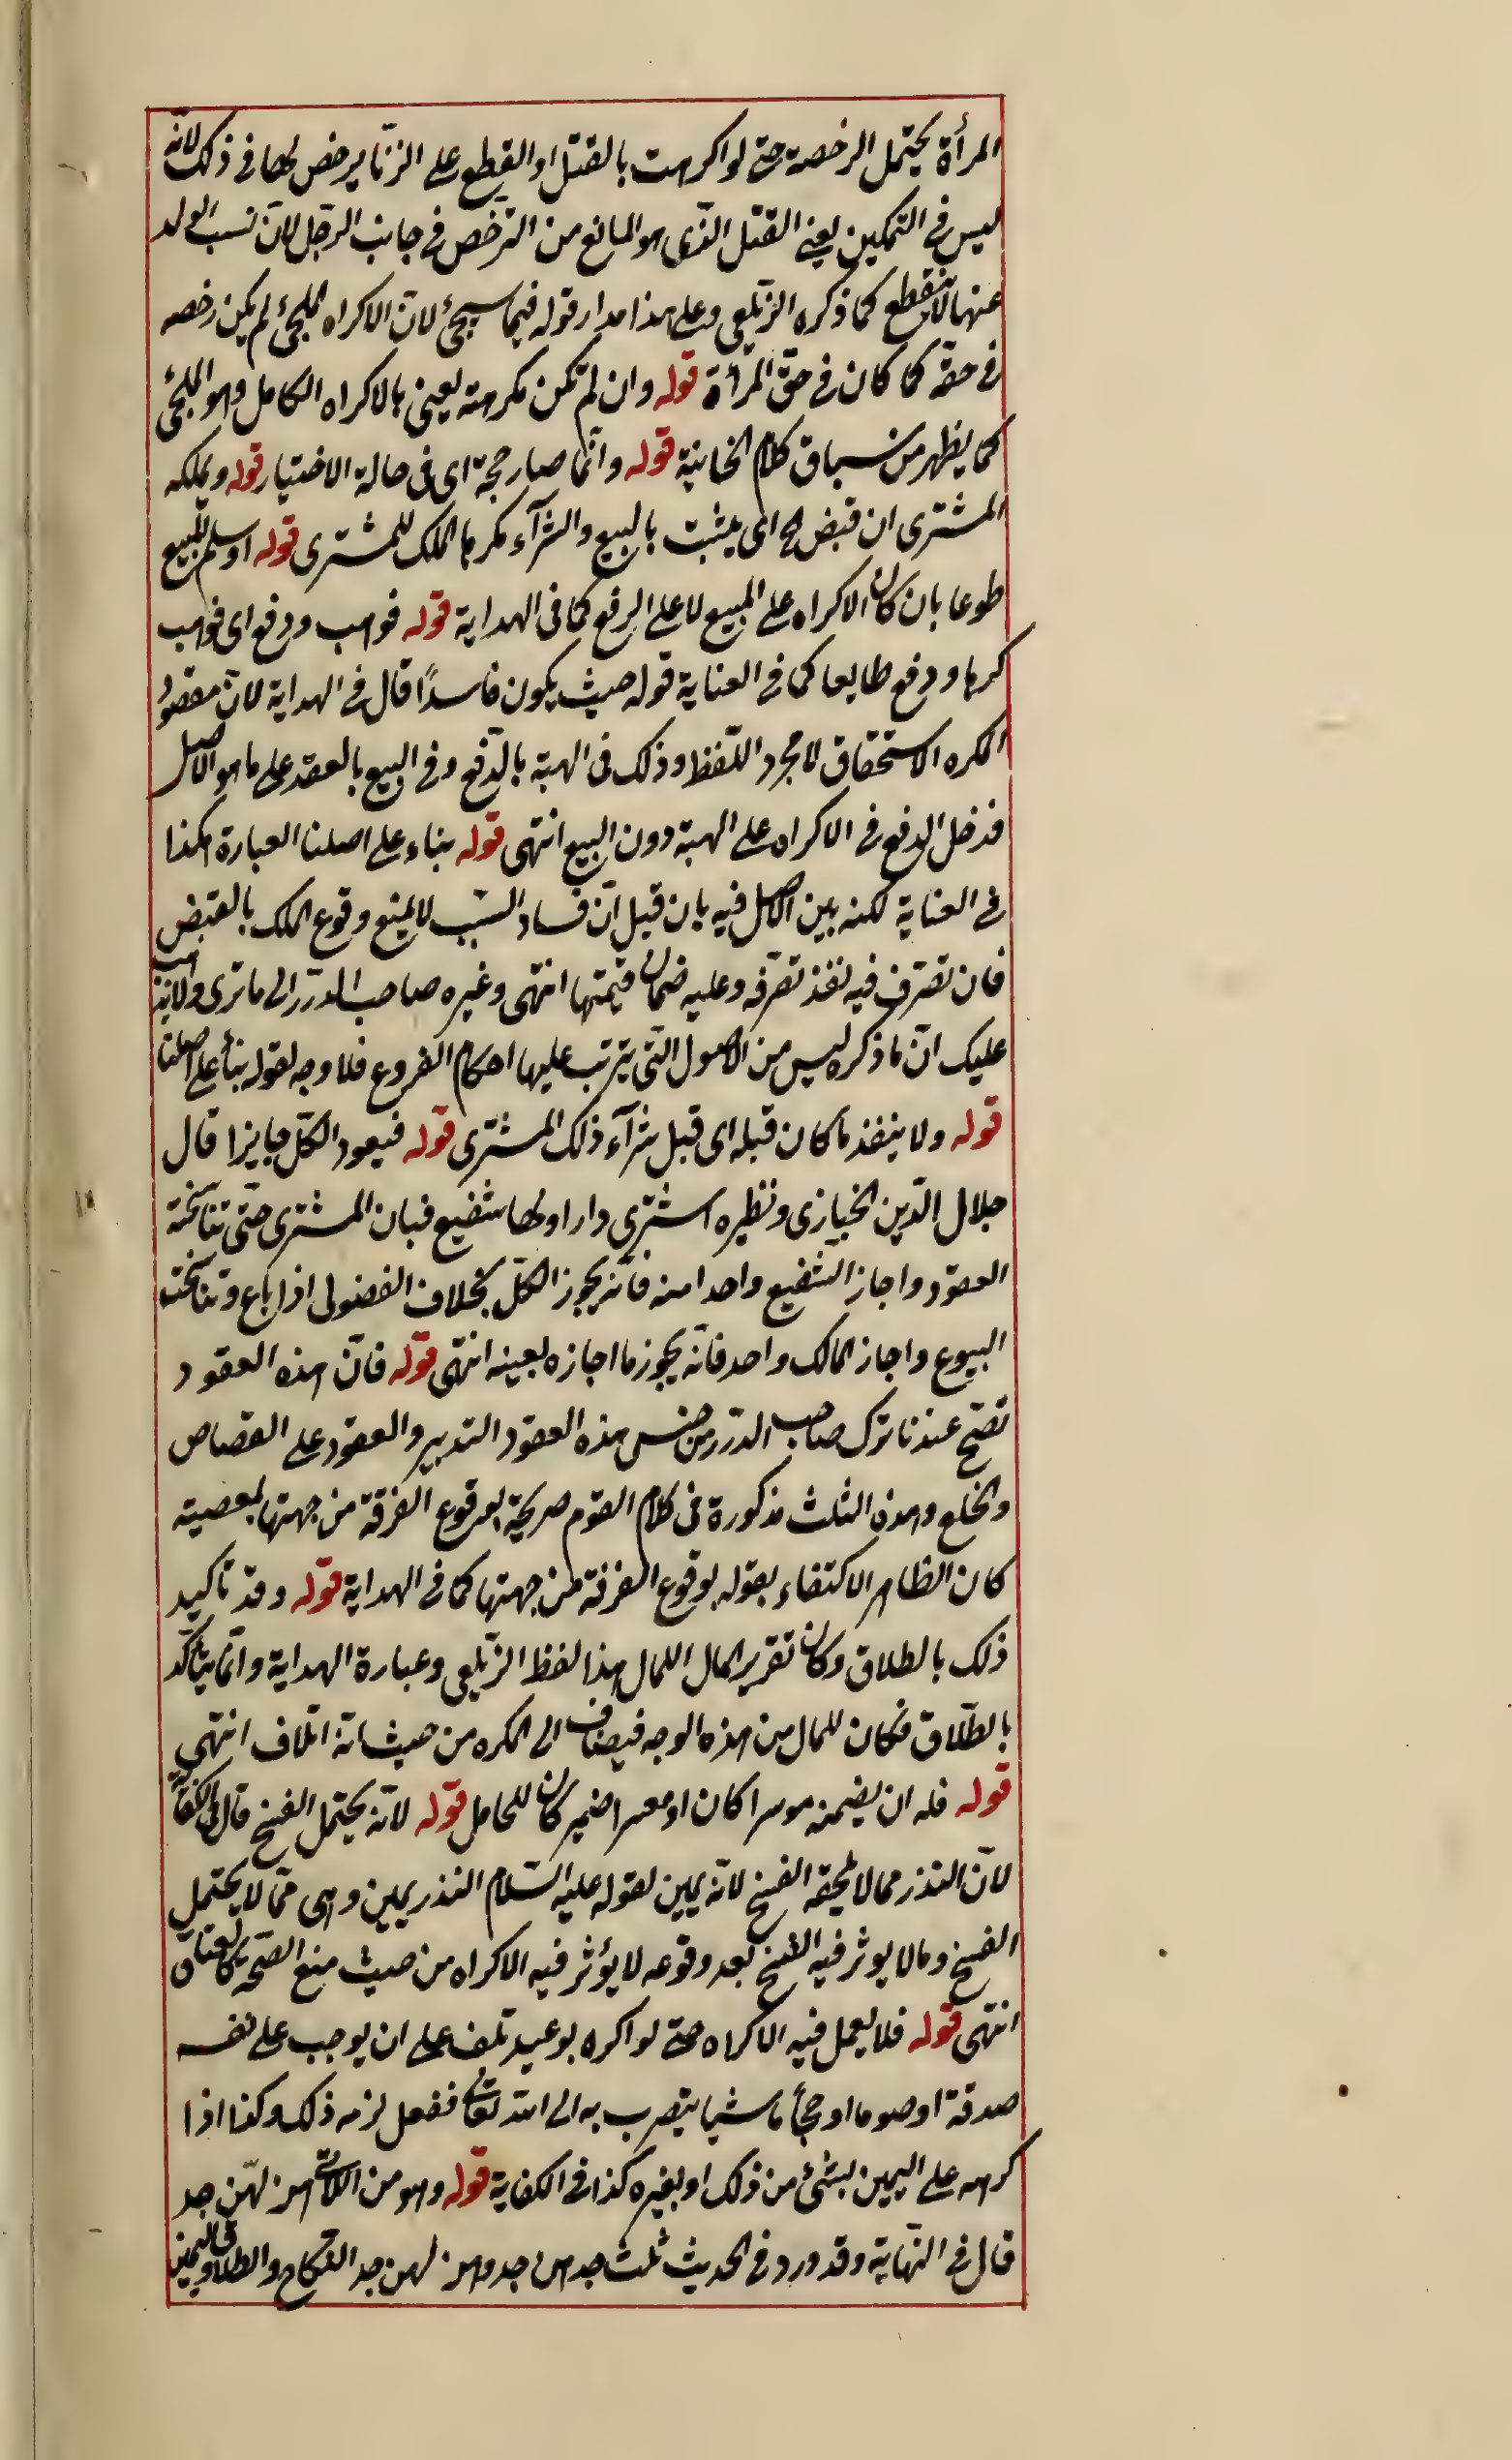 المرأة يحتمل الرخصة حتى لو اكرهت بالقتل او القطع على الزنا يرخص لها فى ذلك لانه
ليس فى التمكين يعنى القتل الذى هو المانع من الترخص فى جانب الرجل لان نسب الولد
عنها لا ينقطع كما ذكره الزيلعى وعلى هذا مدار قوله فيما سيجئ لان الاكراه الملجئ لم يكن رخصه
فى حقه كما كان فى حق المرأة قوله وان لم تكن مكرهة يعنى بالاكراه الكامل وهو الملجئ
كما يظهر من سباق كلام الخانية قوله وانما صار حجة اى فى حالة الاختيار قوله ويملكه
المشترى ان قبض الخ اى يثبت بالبيع والشرآء مكرها الملك للمشترى قوله او سلم المبيع
طوعا بان كان الاكراه على المبيع لا على الدفع كما فى الهداية قوله فوهب ودفع اى فوهب
كرها ودفع طايعا كما فى العناية قوله حيث يكون فاسدًا قال فى الهداية لان مقصود
المكره الاستحقاق لا مجرد اللفظ وذلك فى الهبة بالدفع وفى البيع بالعقد على ما هو الاصل
فدخل الدفع فى الاكراه على الهبة دون البيع انتهى قوله بناء على اصلنا العبارة هكذا
فى العناية لكنه بين الاصل فيه بان قبل ان فساد السبب لا يمنع وقوع الملك بالقبض
فان تصرف فيه نفذ تصرفه وعليه ضمان قيمتها انتهى وغيره صاحب الدرر الى ما ترى ولا يذهب
عليك ان ما ذكره ليس من الاصول التى يترتب عليها احكام الفروع فلا وجه لقوله بنأ على اصلنا
قوله ولا ينفذ ما كان قبله اى قبل شرآء ذلك المشترى قوله فيعود الكل جايزا قال
جلال الدين الخبازى ونظيره اشترى دارا ولها شفيع فبان المشترى حتى تناسخته
العقود واجاز الشفيع واحدا منه فانه يجوز الكل بخلاف الفضولى اذا باع وتناسخت
البيوع واجاز المالك واحد فانه يجوز ما اجازه بعينه انتهى قوله فان هذه العقود
تصح عندنا ترك صاحب الدرر من جنس هذه العقود التدبير والعقود على القصاص
والخلع وهذه الثلث مذكورة فى كلام القوم صريحة بوقوع الفرقة من جهتها بمعصية
كان الظاهر الاكتفاء بقوله بوقوع الفرقة من جهتها كما فى الهداية قوله وقد تأكيد
ذلك بالطلاق وكان تقرير المال للمال هذا لفظ الزيلعى وعبارة الهداية وانما يتأكد
بالطلاق فكان للمال من هذه الوجه فيضاف الى المكره من حيث انه اتلاف انتهى
قوله فله ان يضمنه موسرا كان او معسرا ضمير كان للحامل قوله لانه يحتمل الفسخ قال فى الكفاية
لان النذر مما لا يلحقه الفسخ لانه يمين لقوله عليه السلام النذر يمين وهى مما لا يحتمل
الفسخ وما لا يوثر فيه الفسخ بعد وقوعه لا يؤثر فيه الاكراه من حيث منع الصحة كالعتاق
انتهى قوله فلا يعمل فيه الاكراه حتى لو اكره بوعيد تلف على ان يوجب على نفسه
صدقة او صوما او حجأ ماشيا يتقرب به الى الله تعالى ففعل لزمه ذلك وكذا اذا
كرهه على اليمين بشئ من ذلك او بغيره كذا فى الكفاية قوله وهو من اللاتى هزلهن جد
قال فى النهاية وقد ورد فى الحديث ثلث جدهن جد وهزلهن جد النكاح والطلاق واليمين